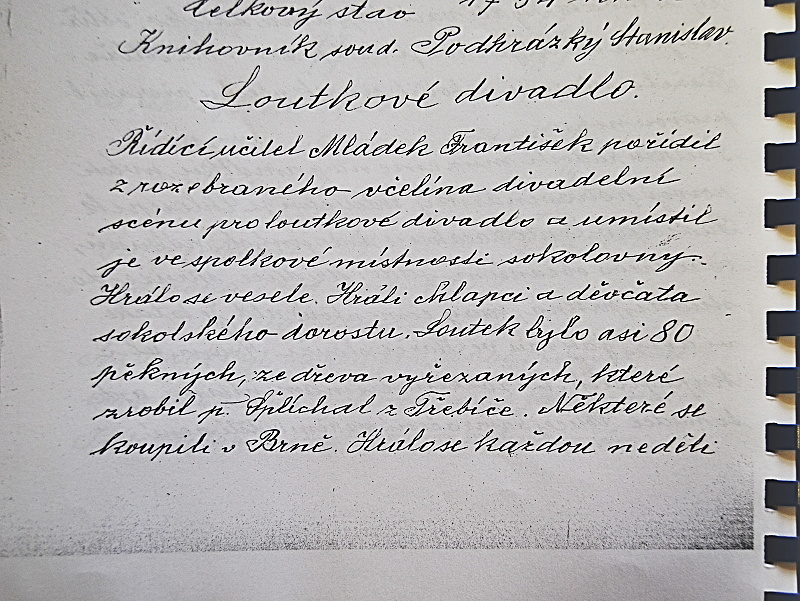 Celkový stav
Knihovník soud. Podhrázký Stanislav.
Loutkové divadlo.
Řídící učitel Mládek František pořídil
z rozebraného včelína divadelní
scénu pro loutkové divadlo a umístil
je ve spolkové místnosti sokolovny.
Hrálo se vesele. Hráli chlapci a děvčata
sokolského dorostu. Loutek bylo asi 80
pěkných, ze dřeva vyřezaných, které
zrobil p. Šplíchal z Třebíče. Některé se
koupili v Brně. Hrálo se každou neděli